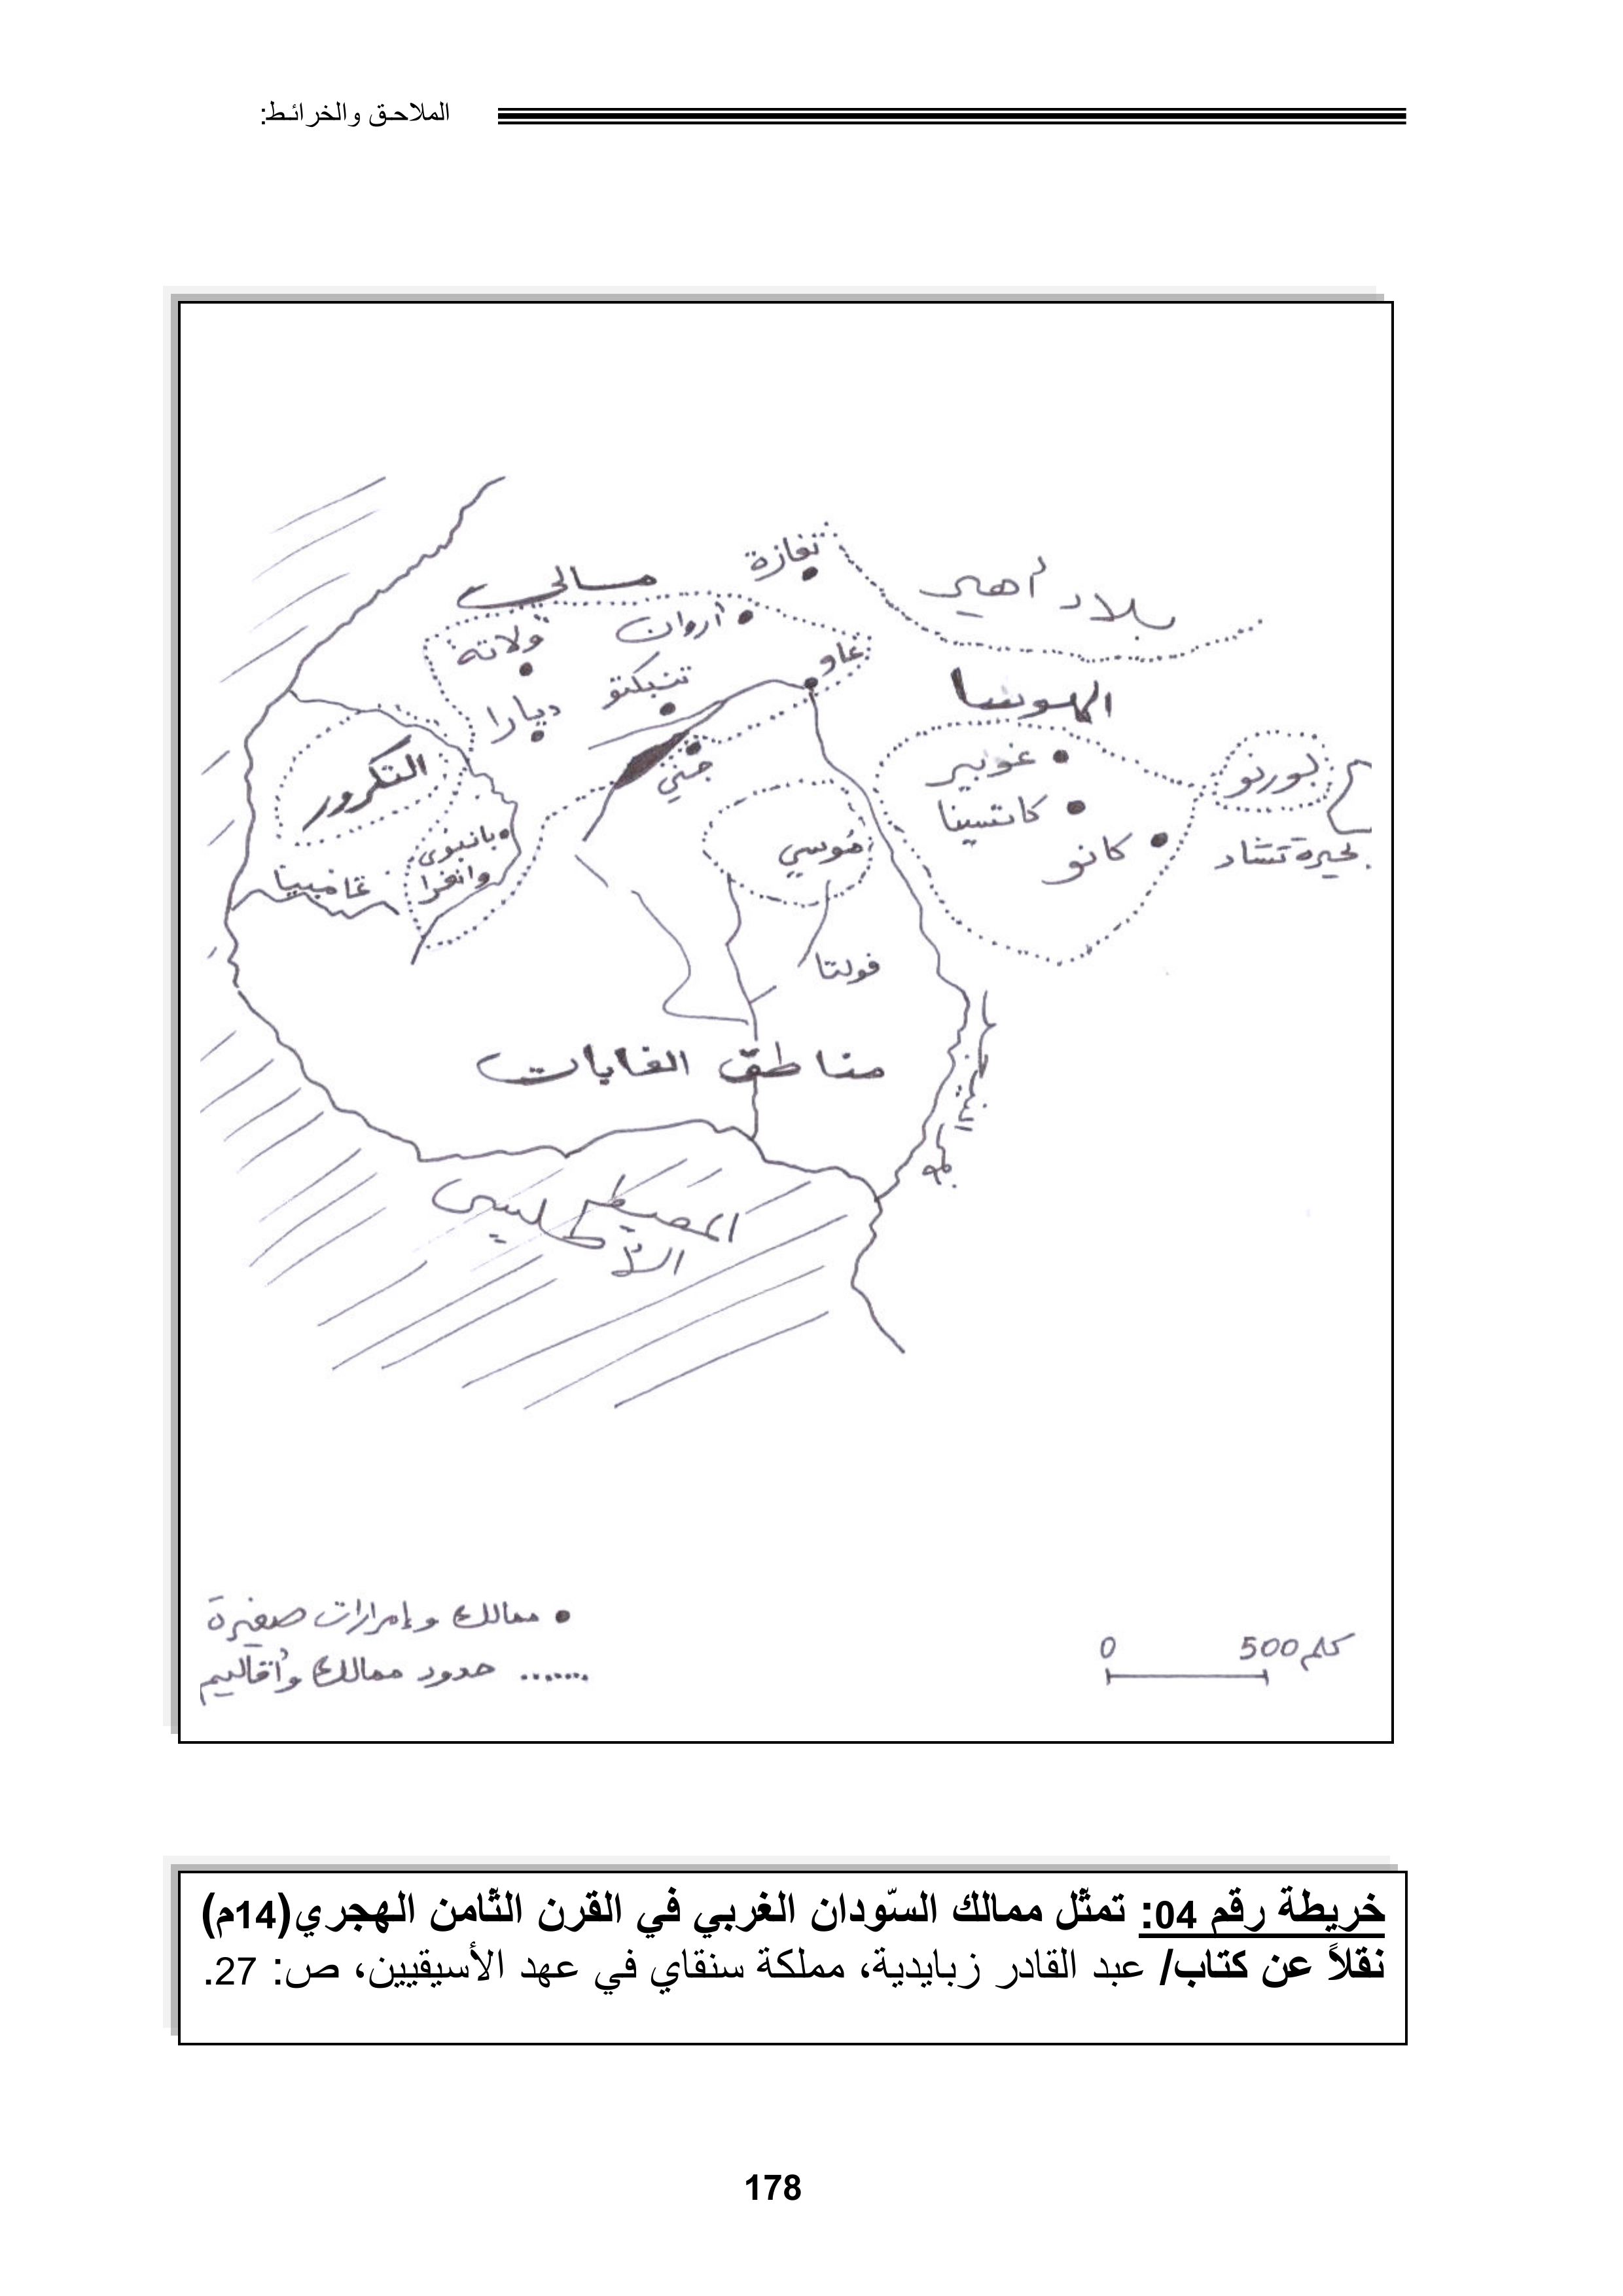 الملاحـق والخرائـط:
تغازة
مـالي
بـلاد أهير
أروان
ولاتة
غاو
تنبكتو
ديارا
الهوسا
جني
التكرور
غوبير
بورنو
كاتسينا
كانو
موسي
بحيرة تشاد
بانبوي
وانغرا
غامبيا
فولتا
مناطق الغابات
المحيط
الأطلسي
• ممالك وإمارات صغيرة
....... حدود ممالك وأقاليم
0 500 كلم
خريطة رقم 04: تمثّل ممالك السّودان الغربي في القرن الثّامن الهجري(14م)
نقلاً عن كتاب/ عبد القادر زبايدية، مملكة سنقاي في عهد الأسيقيين، ص: 27.
178